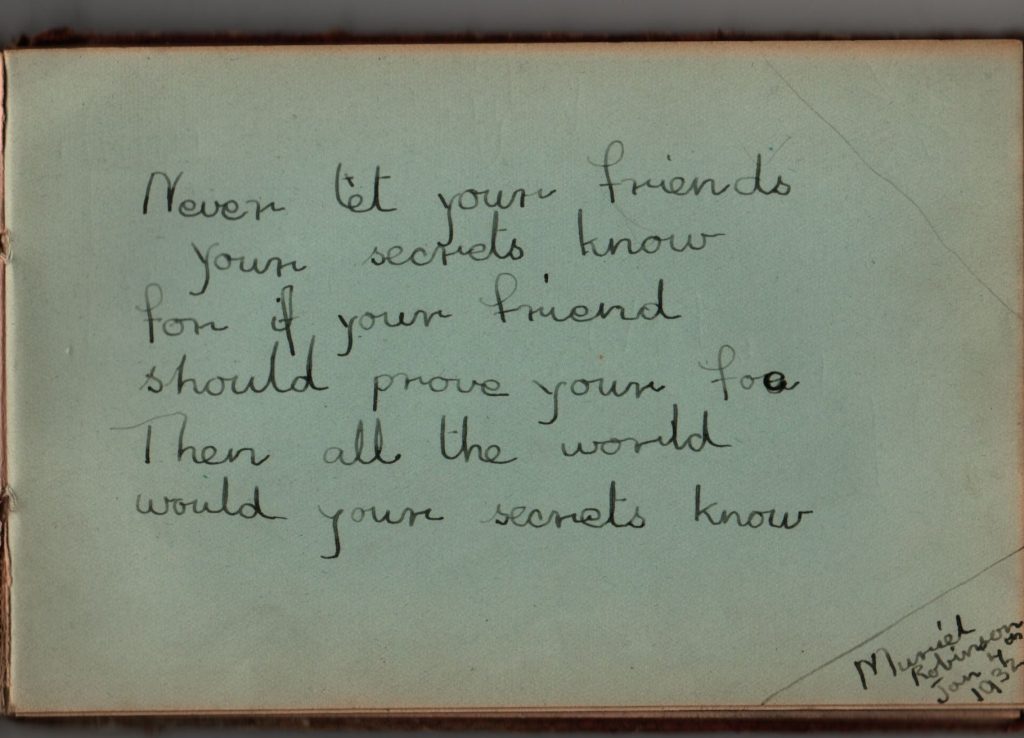 Never let your friends
your secrets know
for if your friend
should prove your foe
Then all the world
would your secrets know
Muriel
Robinson
Jan 4th
1932